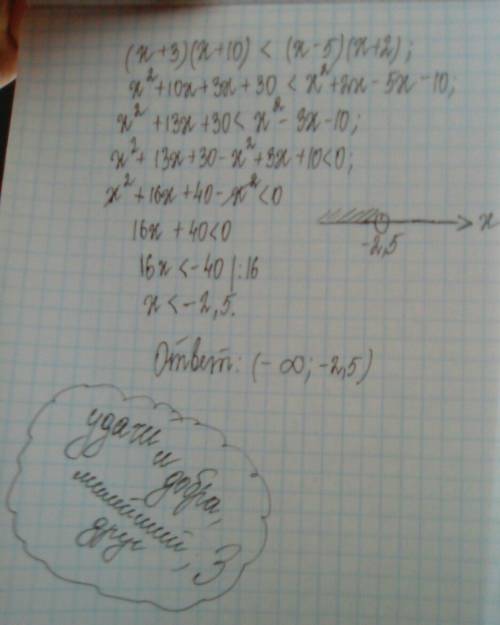 (x+3)(x+10) < (x-5)(x+2);
x²+10x+3x+30 < x²+2x-5x-10;
x²+13x+30 < x²-3x-10;
x²+13x+30-x²+3x+10<0;
x²+16x+40-x²<0
16x+40<0
16x<-40 |:16
x<-2,5.
x
-2,5
Ответ: (-∞; -2,5)
удачи
и
добра,
милейший
друг ;3